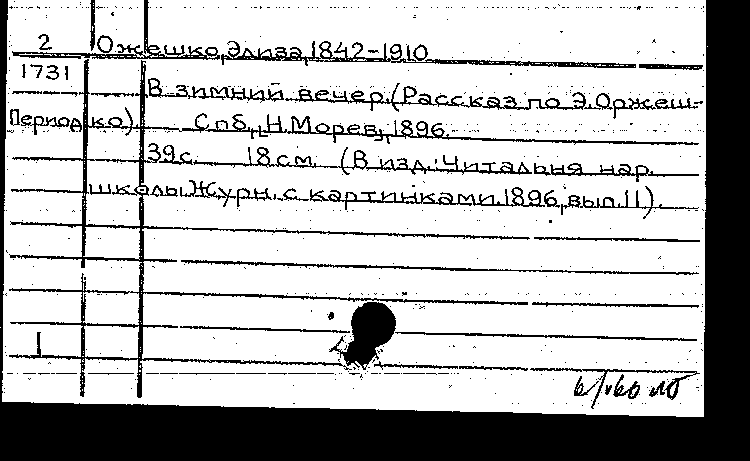 2 Ожешко, Элиза, 1842-1910
1731
В зимний вечер. (Рассказ по Э. Оржеш-
Период ко). Спб., Н. Морев, 1896.
39с. 18см. (В изд.: Читальня нар.
школы. Журн. с картинками. 1896, вып. 11).
1